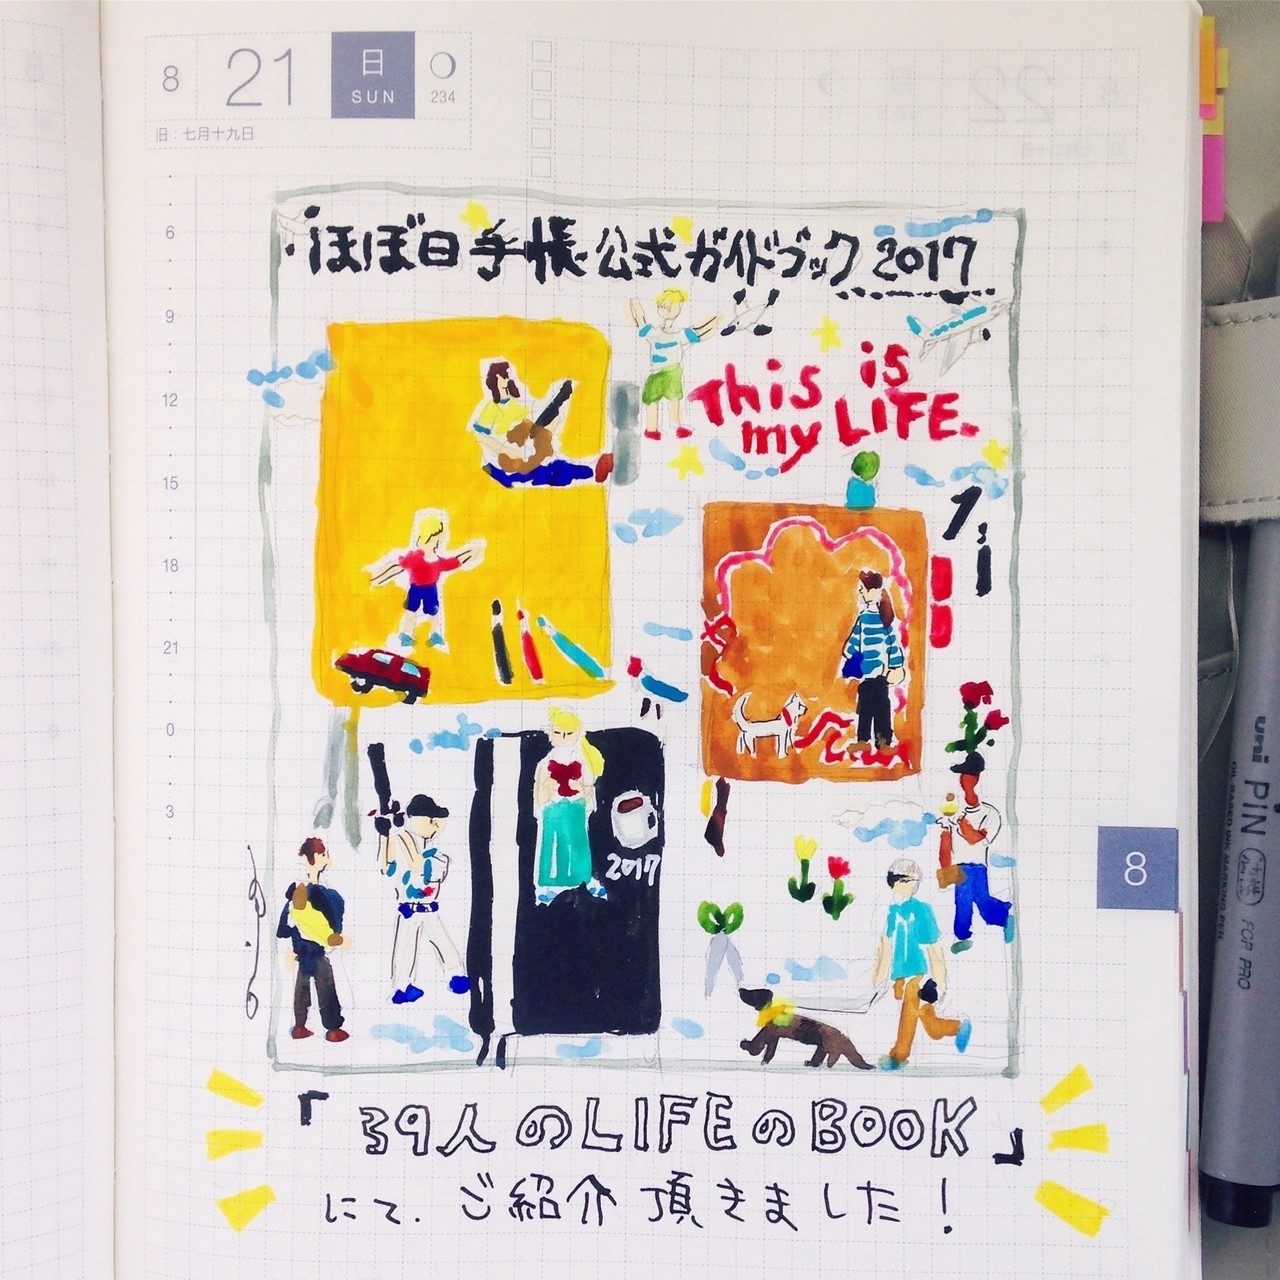 8 21 日 SUN 234
旧:七月十九日
ほぼ日手帳公式ガイドブック 2017
This is
my LIFE.
6
9
12
15
18
21
0
3
2017
8
「39人のLIFEのBOOK」
にて、ご紹介頂きました!
uni PiN
OIL BASED INK MARKING PEN